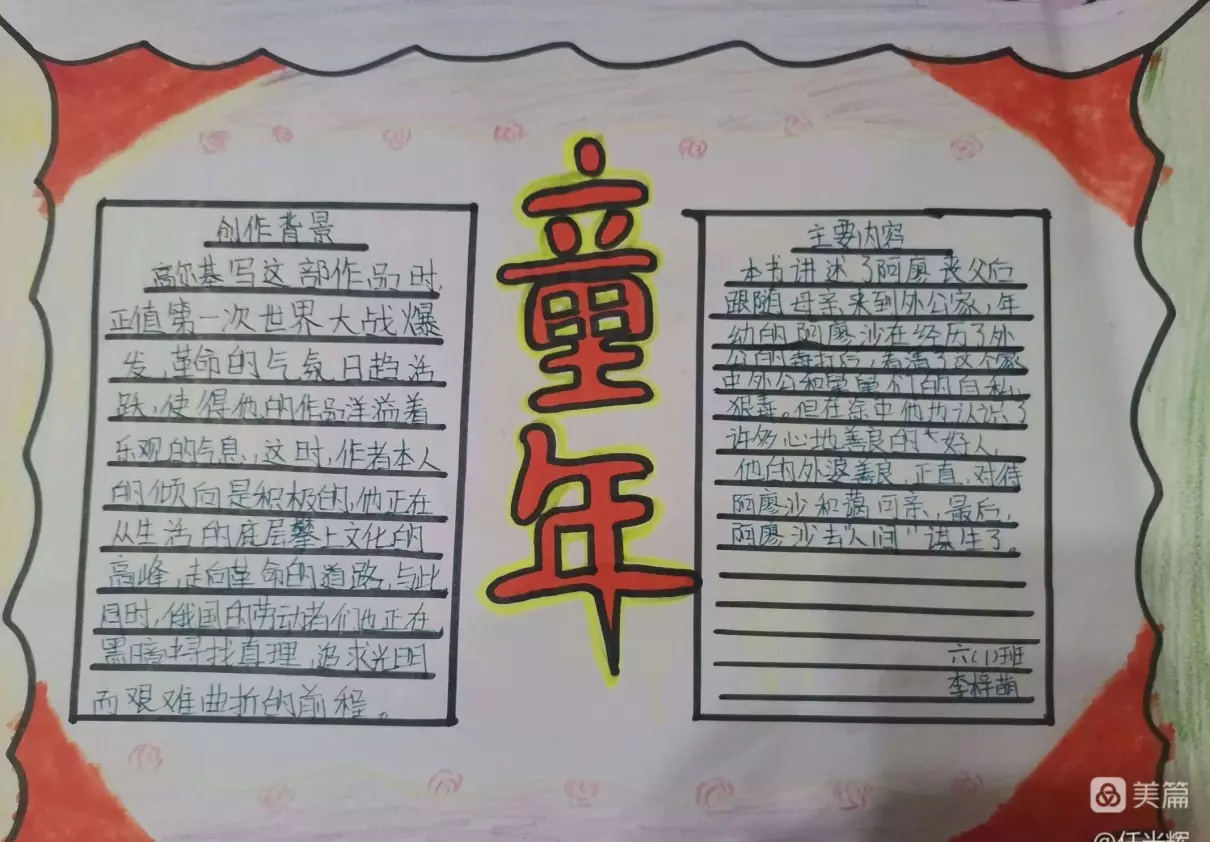 童年
创作背景
高尔基写这部作品时,
正值第一次世界大战爆
发,革命的气氛日趋活
跃,使得他的作品洋溢着
乐观的气息,这时,作者本人
的倾向是积极的,他正在
从生活的底层攀上文化的
高峰,走向革命的道路,与此
同时,俄国的劳动者们也正在
黑暗中寻找真理,追求光明
而艰难曲折的前程。
主要内容
本书讲述了阿廖丧父后
跟随母亲来到外公家,年
幼的阿廖沙在经历了外
公的毒打后,看清了这个家
中外公和舅舅们的自私,
狠毒。但在途中他也认识了
许多心地善良的"好人,
他的外婆善良,正直,对待
阿廖沙和蔼可亲,最后,
阿廖沙去"人间"谋生了。
六(1)班
李梓萌
美篇
@任光辉